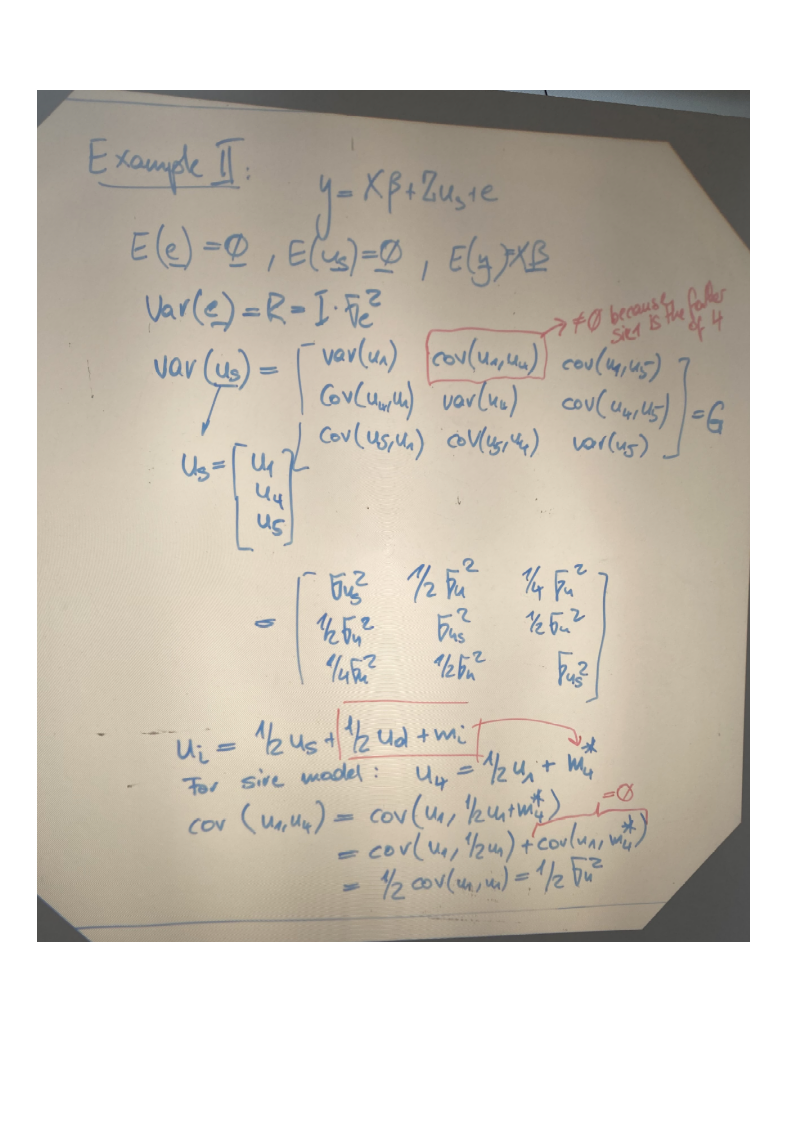 Example II:
y = Xβ + Zu_s + e
E(e) = 0, E(u_s) = 0, E(y) = Xβ
Var(e) = R = I·σ_e^2
≠ 0 because
sier 1 is the father
of 4
var(u_s) = [ var(u_1) cov(u_1,u_4) cov(u_1,u_5)
Cov(u_4,u_1) var(u_4) cov(u_4,u_5)
Cov(u_5,u_1) cov(u_5,u_4) var(u_5) ] = G
u_s = [ u_1
u_4
u_5 ]
= [ σ_{u_s}^2 1/2 σ_u^2 1/4 σ_u^2
1/2 σ_u^2 σ_{u_s}^2 1/2 σ_u^2
1/4 σ_u^2 1/2 σ_u^2 σ_{u_s}^2 ]
u_i = 1/2 u_s + 1/2 u_d + m_i
For sire model: u_4 = 1/2 u_1 + m_4^*
cov(u_1,u_4) = cov(u_1, 1/2 u_1 + m_4^*)
= 0
= cov(u_1, 1/2 u_1) + cov(u_1, m_4^*)
= 1/2 cov(u_1,u_1) = 1/2 σ_u^2